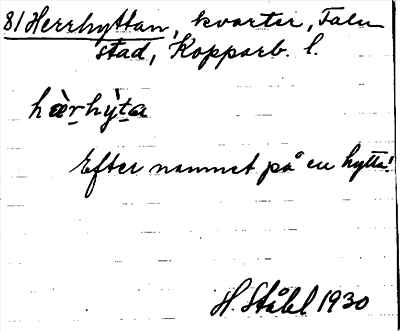 81 Herrhyttan, kvarter, Falu
stad, Kopparb. l.
hæ̀rhỳta
Efter namnet på en hytta!
H. Ståhl 1930